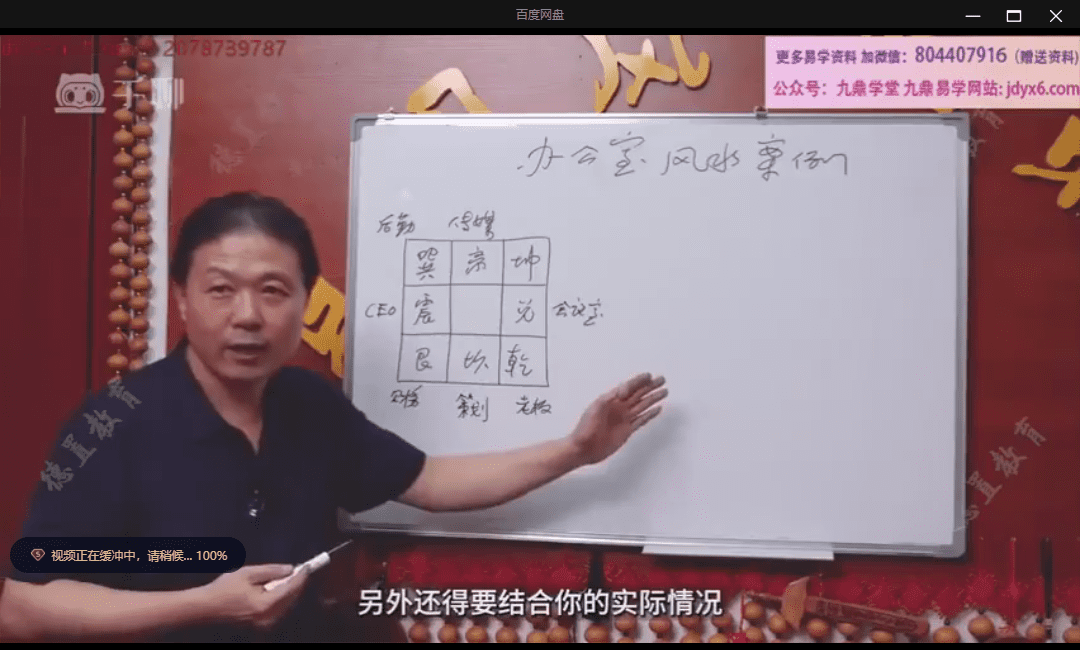 百度网盘
2078739787
更多易学资料 加微信：804407916（赠送资料）
公众号：九鼎学堂 九鼎易学网站: jdyx6.com
千聊
办公室风水案例
后勤 传媒
巽 离 坤
CEO 震 兑 会议室
艮 坎 乾
财务 策划 老板
德置教育
德置教育
视频正在缓冲中，请稍候... 100%
另外还得要结合你的实际情况